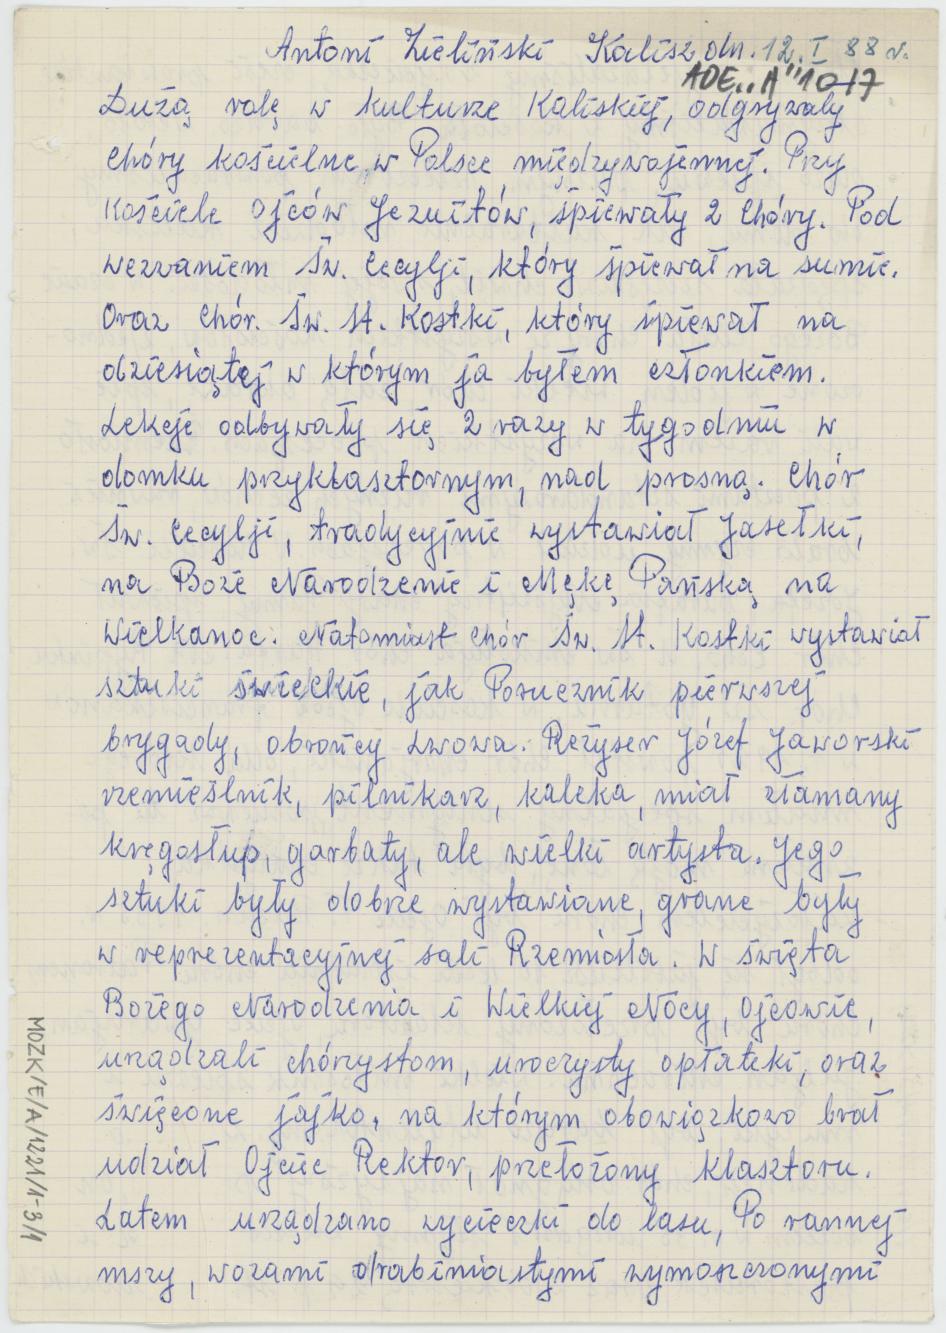 Antoni Zieliński Kalisz dn. 12. I 88 r.
ADE „A" 1017
Dużą rolę w kulturze Kaliskiej, odgrywały
Chóry kościelne w Polsce międzywojennej. Przy
Kościele Ojców Jezuitów, śpiewały 2 Chóry. Pod
wezwaniem Św. Cecylji, który śpiewał na sumie.
Oraz Chór. Św. St. Kostki, który śpiewał na
dziesiątej w którym ja byłem członkiem.
Lekcje odbywały się 2 razy w tygodniu w
domku przyklasztornym, nad prosną. Chór
Św. Cecylji, tradycyjnie wystawiał Jasełki,
na Boże Narodzenie i Mękę Pańską na
Wielkanoc. Natomiast Chór Św. St. Kostki wystawiał
sztuki świeckie, jak Porucznik pierwszej
brygady, obrońcy Lwowa. Reżyser Józef Jaworski
rzemieślnik, pilnikarz, kaleka, miał złamany
kręgosłup, garbaty, ale wielki artysta. Jego
sztuki były dobrze wystawiane, grane były
w reprezentacyjnej sali Rzemiosła. W święta
Bożego Narodzenia i Wielkiej Nocy, Ojcowie,
urządzali chórzystom, uroczysty opłatek, oraz
święcone jajko, na którym obowiązkowo brał
udział Ojciec Rektor, przełożony Klasztoru.
Latem urządzano wycieczki do lasu, Po rannej
mszy, wozami drabiniastymi wymoszczonymi
MOZK/E/A/1221/1-3/1